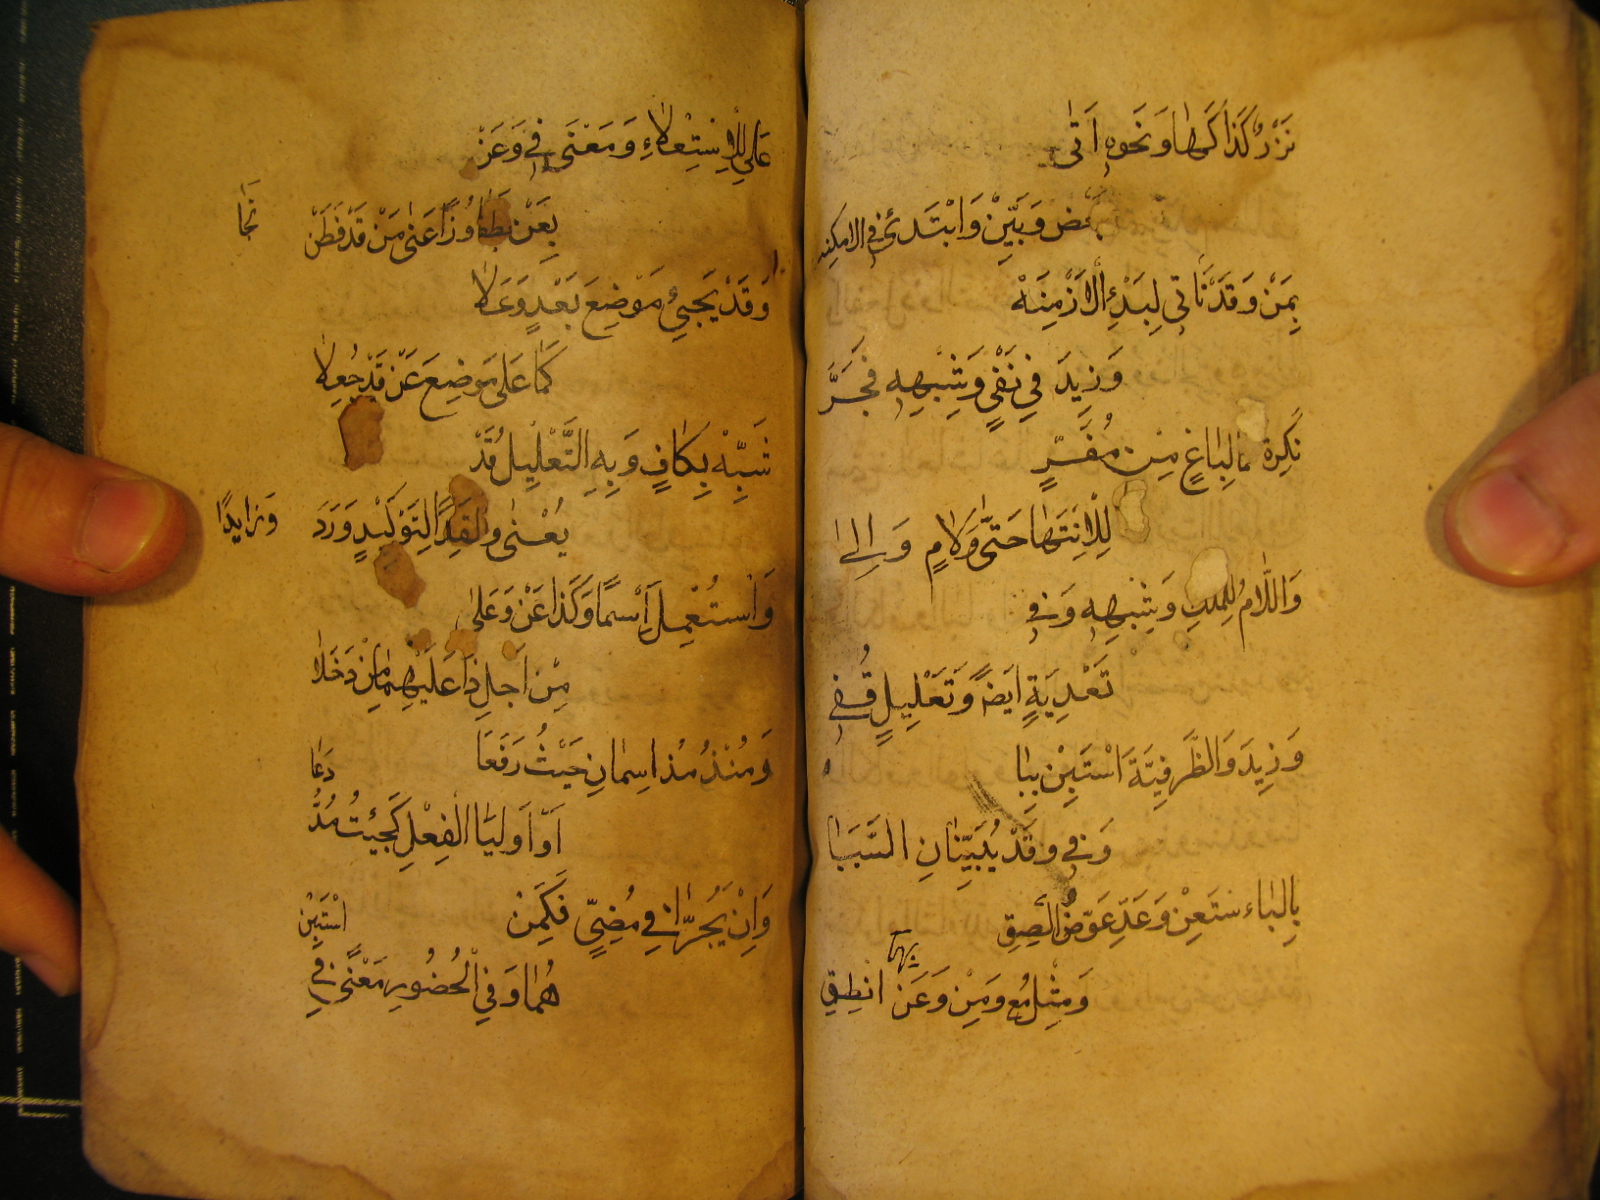 نَزْرٌ كَذَا كَهَا وَنَحْوِهِ أَتَى
بَعِّضْ وَبَيِّنْ وَابْتَدِئْ فِي الْأَمْكِنَه
بِمِنْ وَقَدْ تَأْتِي لِبَدْءِ الْأَزْمِنَهْ
وَزِيدَ فِي نَفْيٍ وَشِبْهِهِ فَجَرَّ
نَكِرَةً مَا لِبَاغٍ مِنْ مَفَرٍّ
لِلْاِنْتِهَا حَتَّى وَلَامٍ وَإِلَى
وَاللَّامُ لِلْمِلْكِ وَشِبْهِهِ وَفِي
تَعْدِيَةٍ أَيْضًا وَتَعْلِيلٍ قُفِي
وَزِيدَ وَالظَّرْفِيَّةَ اسْتَبِنْ بِبَا
وَفِي وَقَدْ يُبَيِّنَانِ السَّبَبَا
بِالْبَاءِ سْتَعِنْ وَعَدِّ عَوِّضْ أَلْصِقِ
وَمِثْلَ مَعْ وَمِنْ وَعَنْ بِهَا انْطِقِ
عَلَى لِلْاِسْتِعْلَاءِ وَمَعْنَى فِي وَعَنْ
بِعَنْ تَجَاوُزًا عَنَى مَنْ قَدْ فَطَنْ
تَجَا
وَقَدْ يَجِيءُ مَوْضِعَ بَعْدٍ وَعَلَا
كَمَا عَلَى مَوْضِعَ عَنْ قَدْ جُعِلَا
شَبِّهْ بِكَافٍ وَبِهِ التَّعْلِيلُ قَدْ
يُعْنَى وَ لِتَوْكِيدٍ وَرَدَ
وَزَايِدًا
وَاسْتُعْمِلَ اسْمًا وَكَذَا عَنْ وَعَلَى
مِنْ أَجْلِ ذَا عَلَيْهِمَا مِنْ دَخَلَا
وَمُنْذُ مُذْ اسْمَانِ حَيْثُ رَفَعَا
أَوْ أُولِيَا الْفِعْلَ كَجِئْتُ مُذْ
دَعَا
وَإِنْ يَجُرَّا فِي مُضِيٍّ فَكَمِنْ
هُمَا وَفِي الْحُضُورِ مَعْنَى فِي
اسْتَبِنْ